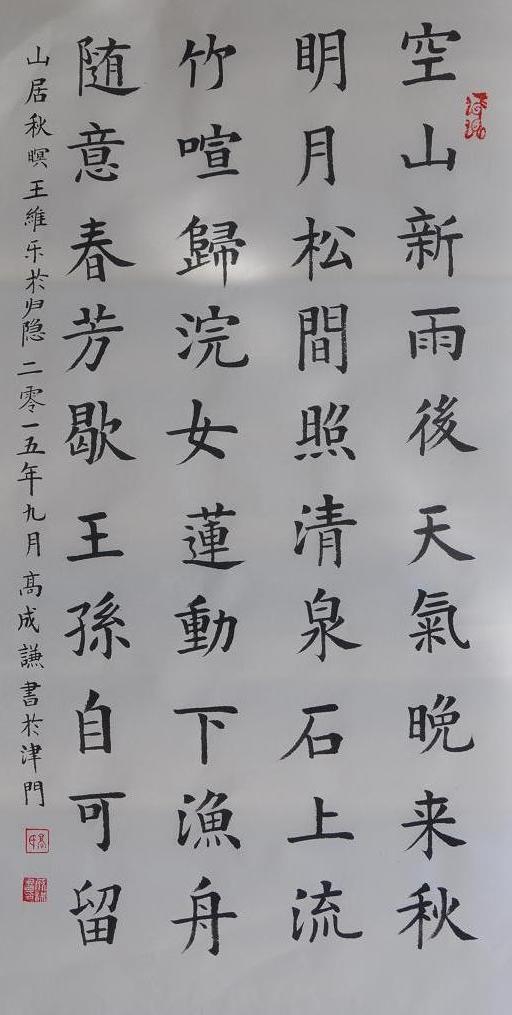 空山新雨後天氣晚来秋
明月松間照清泉石上流
竹喧歸浣女蓮動下漁舟
随意春芳歇王孫自可留
山居秋暝王維乐於归隐二零一五年九月高成謙書於津門